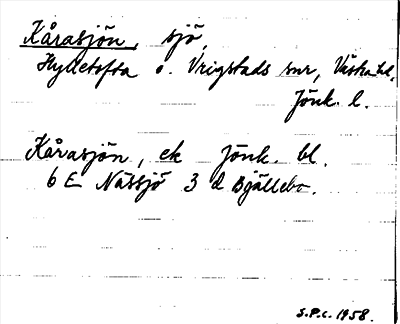 Kårasjön, sjö
Hylletofta o. Vrigstads snr, Västra hd.
Jönk. l.
Kårasjön, ek Jönk. bl.
6 E Nässjö 3 d Bjällebo.
S.P.C. 1958.